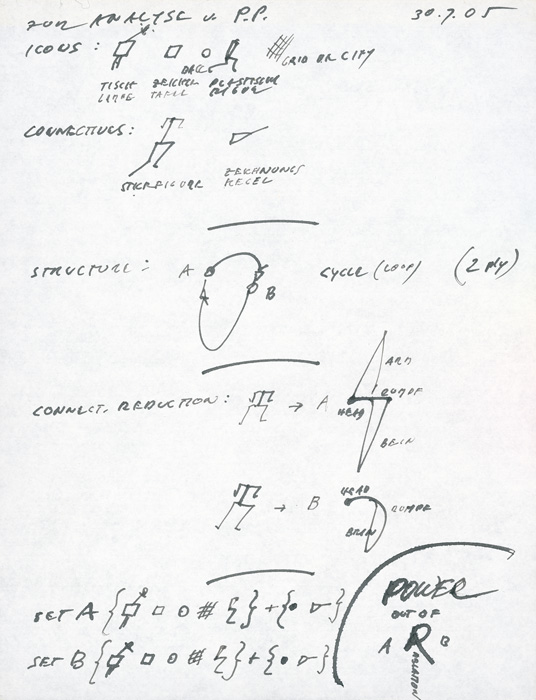 ZUR ANALYSE v. P.P. 30.7.05
ICONS: GRID OR CITY
BALL
TISCH ZEICHEN PLASTISCHE
TAFEL FIGUR
CONNECTIVES:
STICKFIGURE ZEICHNUNGS
KEGEL
STRUCTURE: A B CYCLE (LOOP) (2 ply)
CONNECT. REDUCTION: → A
ARM
HEAD RUMPF
BEIN
→ B
HEAD
RUMPF
BEIN
SET A { # } + { }
SET B { # } + { }
POWER
OUT OF
A R B